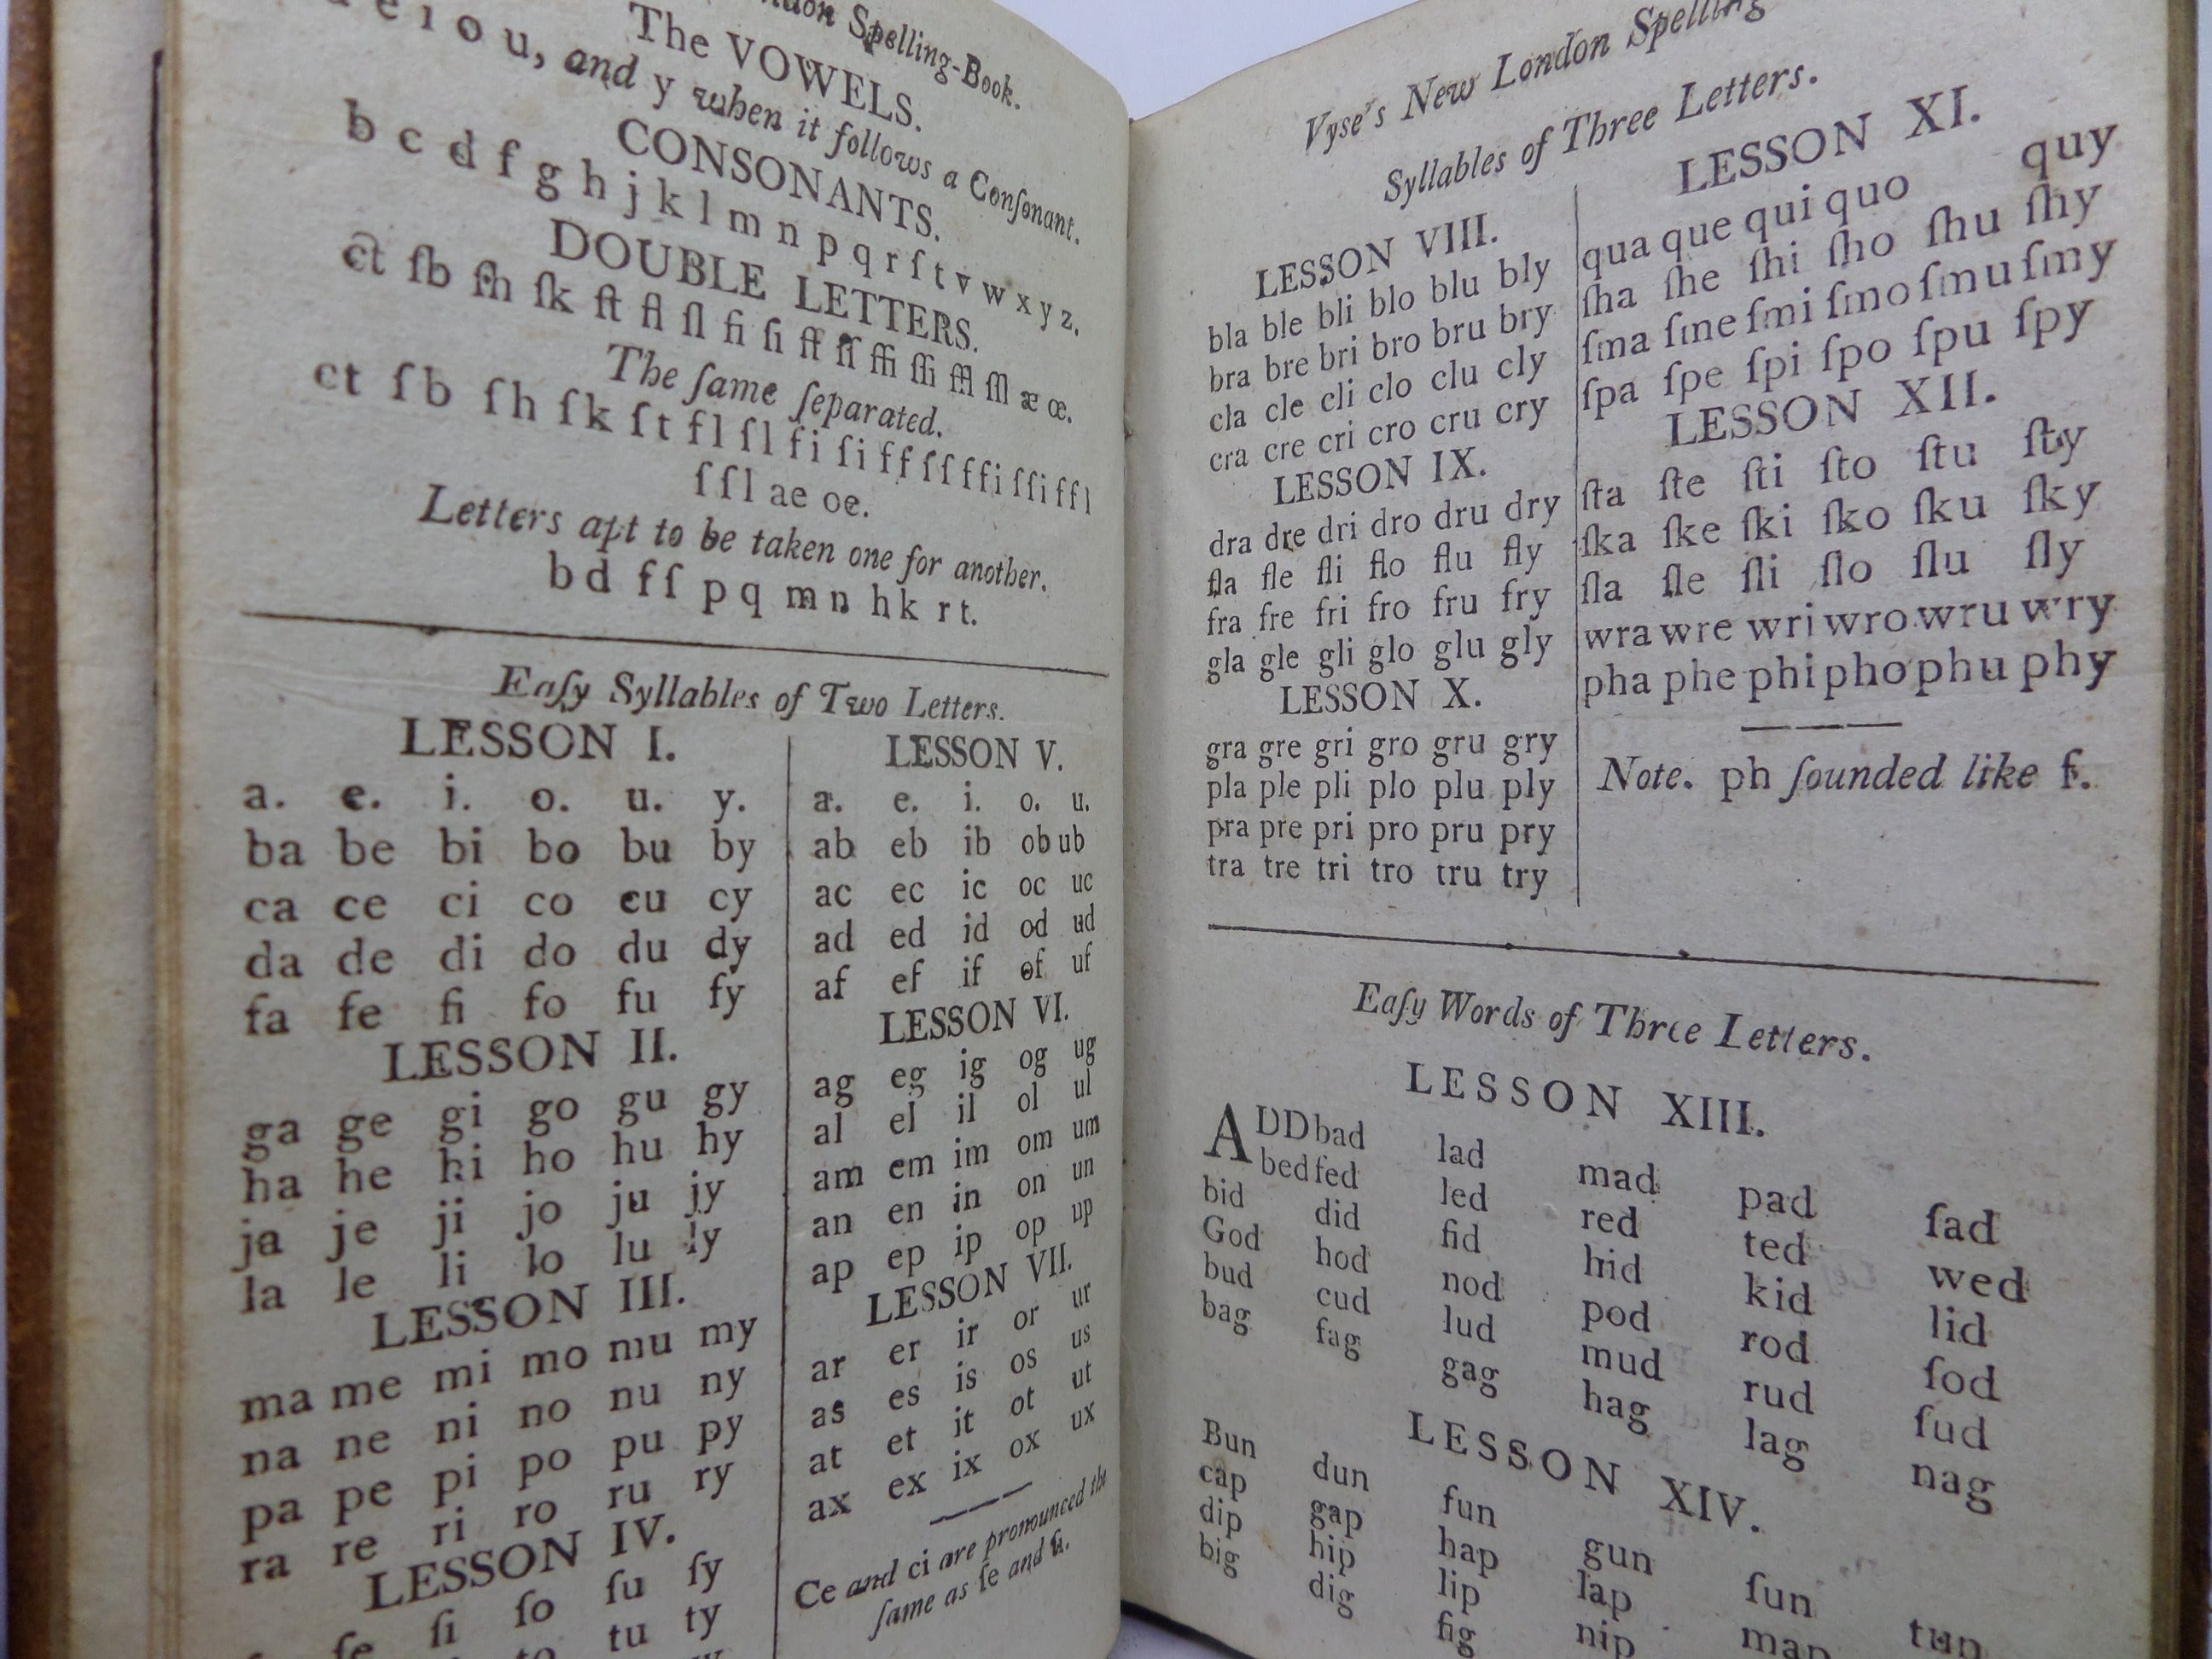 Spelling-Book.
The VOWELS.
e i o u, and y when it follows a Conſonant.
CONSONANTS.
b c d f g h j k l m n p q r ſ t v w x y z.
DOUBLE LETTERS.
ct ſb ſh ſk ſt fl ſl fi ſi ff ſſ ffi ſſi ffl ſſl æ œ.
The ſame ſeparated.
ct ſb ſh ſk ſt fl ſl fi ſi ff ſſ ffi ſſi ffl
ſſl ae oe.
Letters apt to be taken one for another.
b d f ſ p q m n h k r t.
Eaſy Syllables of Two Letters.
LESSON I.
a. e. i. o. u. y.
ba be bi bo bu by
ca ce ci co cu cy
da de di do du dy
fa fe fi fo fu fy
LESSON II.
ga ge gi go gu gy
ha he hi ho hu hy
ja je ji jo ju jy
la le li lo lu ly
LESSON III.
ma me mi mo mu my
na ne ni no nu ny
pa pe pi po pu py
ra re ri ro ru ry
LESSON IV.
ſe ſi ſo ſu ſy
to tu ty
LESSON V.
a. e. i. o. u.
ab eb ib ob ub
ac ec ic oc uc
ad ed id od ud
af ef if of uf
LESSON VI.
ag eg ig og ug
al el il ol ul
am em im om um
an en in on un
ap ep ip op up
LESSON VII.
ar er ir or ur
as es is os us
at et it ot ut
ax ex ix ox ux
Ce and ci are pronounced the
ſame as ſe and ſi.
Vyse's New London Spelling
Syllables of Three Letters.
LESSON VIII.
bla ble bli blo blu bly
bra bre bri bro bru bry
cla cle cli clo clu cly
cra cre cri cro cru cry
LESSON IX.
dra dre dri dro dru dry
fla fle fli flo flu fly
fra fre fri fro fru fry
gla gle gli glo glu gly
LESSON X.
gra gre gri gro gru gry
pla ple pli plo plu ply
pra pre pri pro pru pry
tra tre tri tro tru try
LESSON XI.
qua que qui quo quy
ſha ſhe ſhi ſho ſhu ſhy
ſma ſme ſmi ſmo ſmu ſmy
ſpa ſpe ſpi ſpo ſpu ſpy
LESSON XII.
ſta ſte ſti ſto ſtu ſty
ſka ſke ſki ſko ſku ſky
ſla ſle ſli ſlo ſlu ſly
wra wre wri wro wru wry
pha phe phi pho phu phy
Note. ph ſounded like f.
Eaſy Words of Three Letters.
LESSON XIII.
ADD bad lad mad pad ſad
bed fed led red ted wed
bid did fid hid kid lid
God hod nod pod rod ſod
bud cud lud mud rud ſud
bag fag gag hag lag nag
LESSON XIV.
Bun dun fun gun ſun tun
cap gap hap lap map
dip hip lip nip
big dig fig